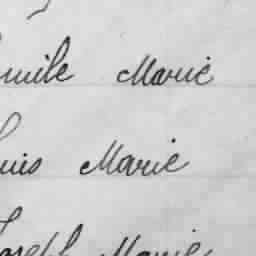 Emile Marie
Louis Marie
Joseph Marie